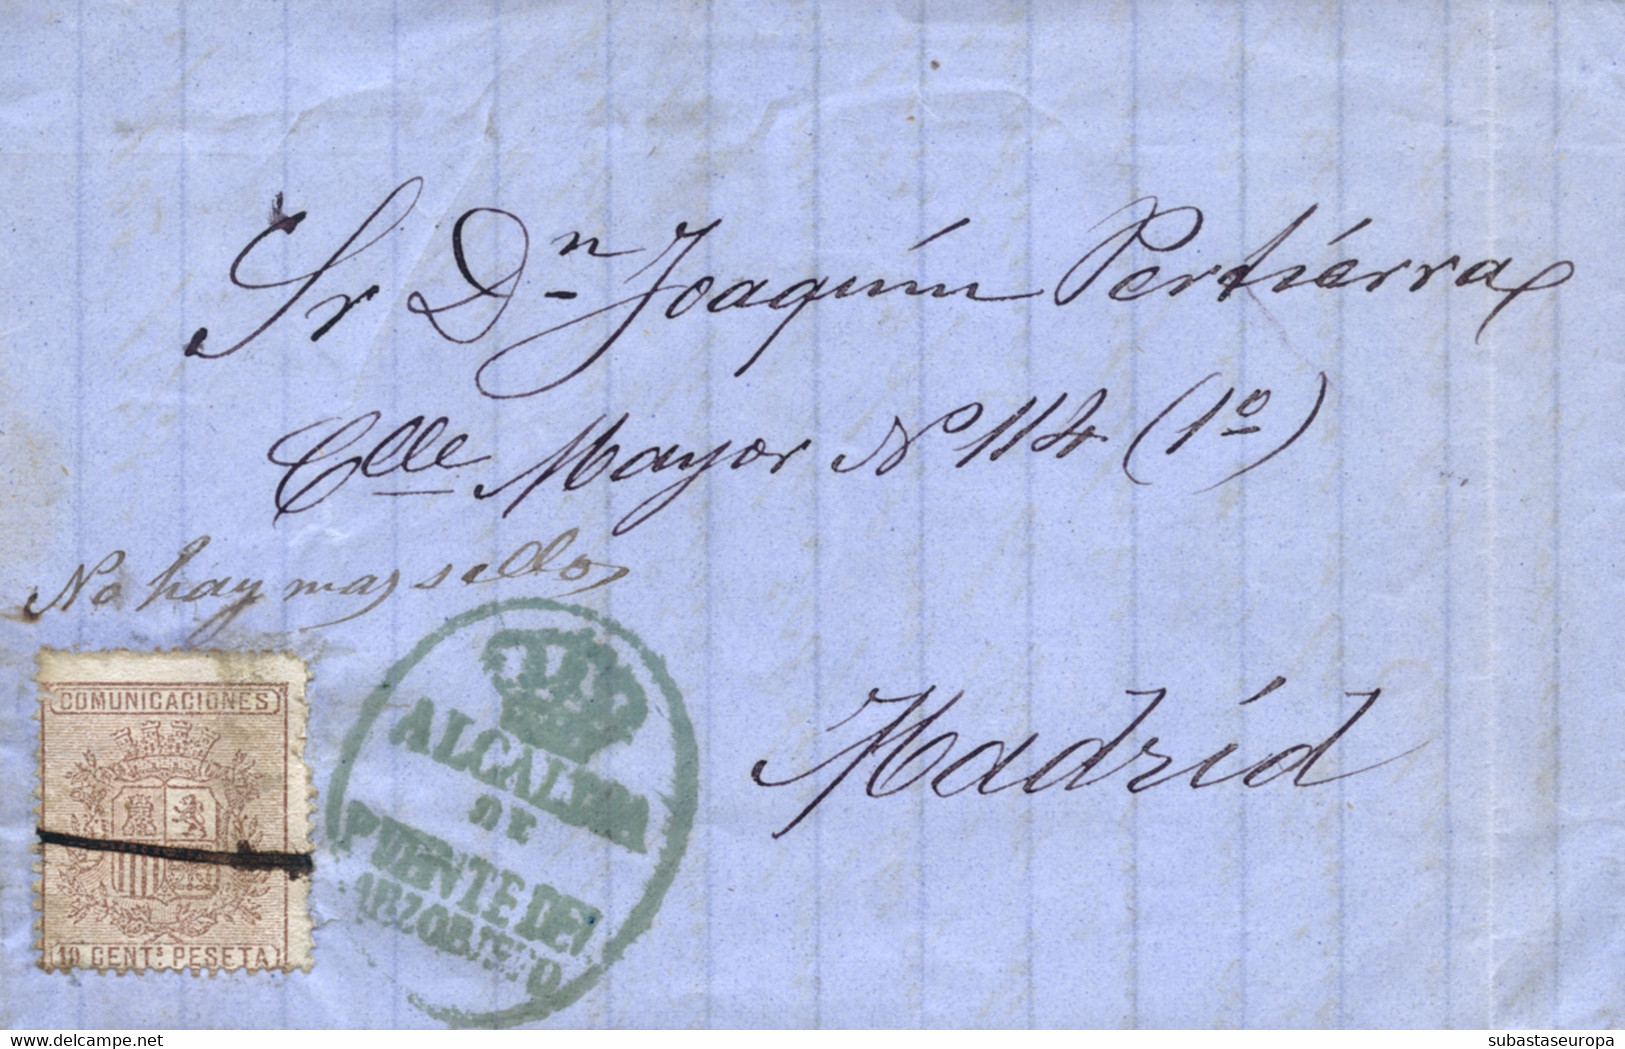 Sr Dn Joaquín Pertiérra
Clle Mayor N 114 (1º)
No hay mas sellos
Madrid
COMUNICACIONES
10 CENTs PESETA
ALCALDIA
DE
PUENTE DEL
ARZOBISPO
delcampe.net
subastaseuropa